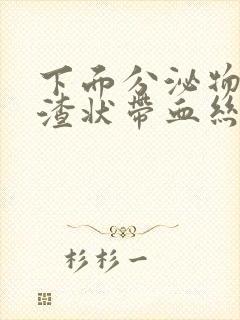 下面分泌物
渣状带血丝
杉杉一